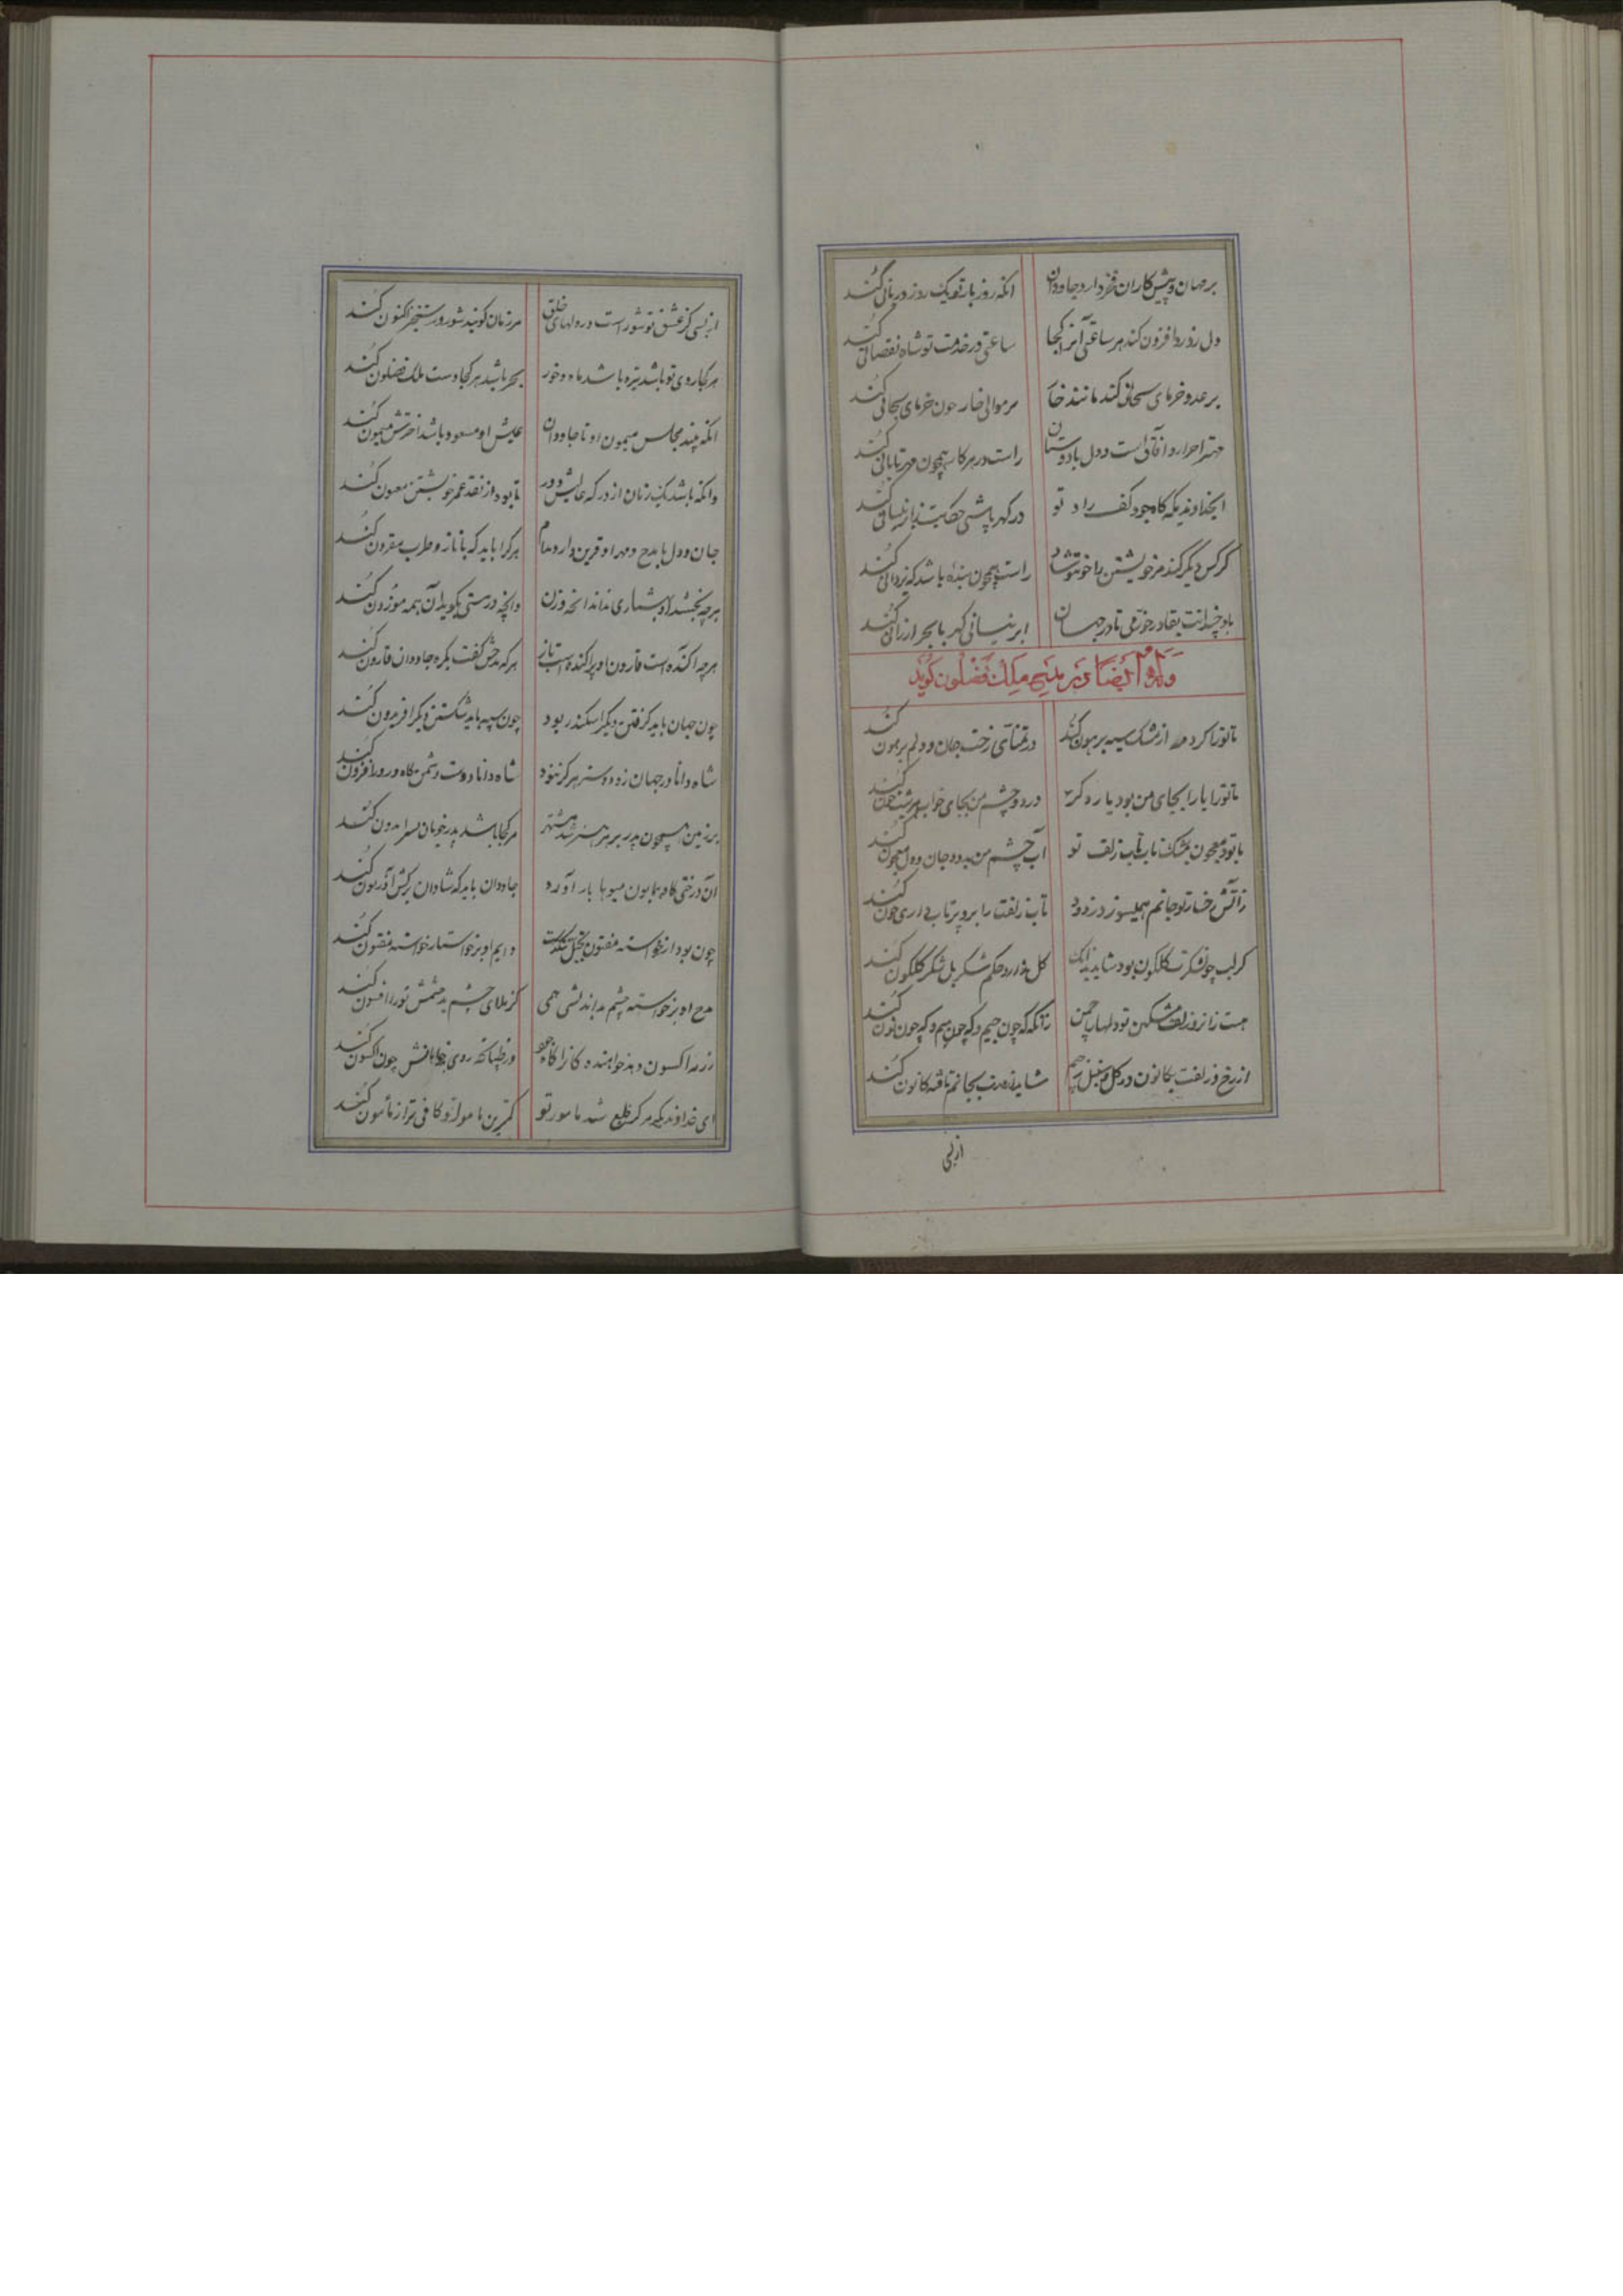 بر جهان و پیش کاران فخر دارد جاودان آنکه روز بار تو یک روز دربانی کند
دل ز درد افزون کند هر ساعتی آنرا کجا ساعتی در خدمت تو شاه نقصانی کند
بر عدو خرمای سحانی کند مانند خار بر موالی خار چون خرمای سحانی کند
مهتر احرار و آفاقی است و دل با دوستان راست در هر کار همچون مهر تابانی کند
ای خداوندیکه گاه جود کف راد تو در گهر پاشی حکایت ز ابر نیسانی کند
گر کس دیگر کند مر خویشتن را چون تو شاد راست همچون بنده باشد که یزدانی کند
باد چندانت بقا در خرمی تا در جهان ابر نیسانی گهر با بحر ارزانی کند
وله ایضا در مدح ملک فضلون گوید
تا تو را گرد مه از مشک سیه پرهون کند در تمنای رخت جان و دلم پرخون کند
تا تو را یارا بجای من بود یار دگر در دو چشم من بجای خواب هر شب خون کند
تا بود معجون بمشک ناب تاب زلف تو آب چشم من بدود جان و دل معجون کند
ز آتش رخسار تو جانم همیسوزد ز دود تاب زلفت را بر و پر تاب داری چون کند
گر لب چون شکرت گلگون بود شاید بدانک گل بدارد حکم شکر بل شکر گلگون کند
هست زانرو زلف مشکین تو دلها را چمن زانکه گه چون جیم و گه چون میم و گه چون نون کند
از رخ و زلفت بکانون در گل و سنبل برم شاید زهدت بجانم تافته کانون کند
از بسی
از بسی کز عشق تو شور است در دلهای خلق هر زمان گویند شور رستخیز اکنون کند
هر کجا روی تو باشد تیره باشد ماه و خور بحر باشد هر کجا دست ملک فضلون کند
آنکه بیند مجلس میمون او تا جاودان عیش او مسعود باشد اخترش میمون کند
وانکه باشد یک زمان از درگه عالیش دور تا بود از نقد عمر خویشتن معون کند
جان و دل با مدح و مهر او قرین دارد مدام هر کرا باید که با ناز و طرب مقرون کند
هر چه بخشد او بشماری نداند انچه وزن وانچه درستی بگوید آن همه موزون کند
هر چه آکنده است قارون او پراکنده است باز هر که مدحش گفت یکره جاودان قارون کند
چون جهان باید گرفتن دیگر اسکندر بود چون سپه باید شکستن دیگر افریدون کند
شاه دانا در جهان زو دوستر هرگز نبود شاه دانا دوست دشمن گاه و روز افزون کند
بر زمین همچون پدر بر هر هنر شد مشتهر هر کجا باشد پدر خوبان پسر ایدون کند
آن درختی کاو همایون میوها بار آورد جاودان باید که شادان برگش آذریون کند
چون بود از خواسته مفتون بخیل تنگدست دایم او بر خواستار خواسته مفتون کند
مدح او بر خواسته چشم بد اندیشی همی کز بلای چشم بد چشمش تو را افسون کند
زر به اکسون دهد خواهنده گانرا گاه جود وز طپانچه روی بدخواهانش چون اکسون کند
ای خداوندیکه هر کس قلع شد مامور تو کمترین مامور تو کافی تر از مأمون کند